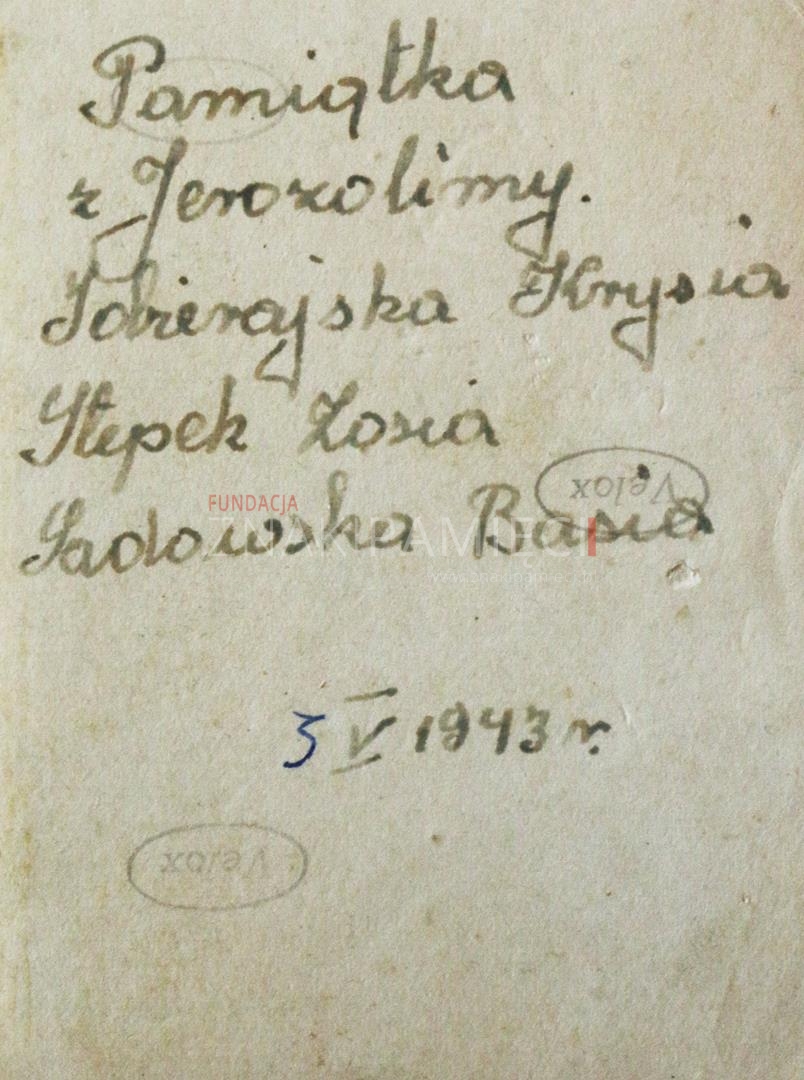 Pamiątka
z Jerozolimy.
Sobierajska Krysia
Stępek Zosia
Velox
Sadowska Basia
FUNDACJA
ZNAK PAMIĘCI
5 V 1943 r.
Velox